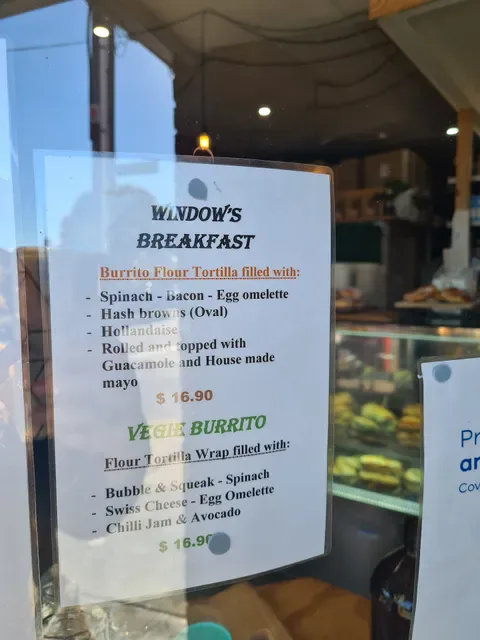 WINDOW'S
BREAKFAST
Burrito Flour Tortilla filled with:
- Spinach - Bacon - Egg omelette
- Hash browns (Oval)
- Hollandaise
- Rolled and topped with
Guacamole and House made
mayo
$ 16.90
VEGIE BURRITO
Flour Tortilla Wrap filled with:
- Bubble & Squeak - Spinach
- Swiss Cheese - Egg Omelette
- Chilli Jam & Avocado
$ 16.90
Pr
an
Cov